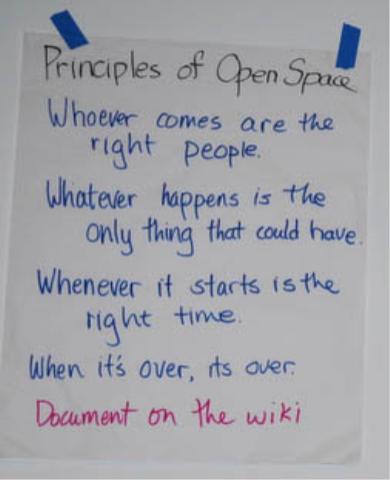 Principles of Open Space
Whoever comes are the
right people.
Whatever happens is the
only thing that could have.
Whenever it starts is the
right time.
When it's over, its over.
Document on the wiki